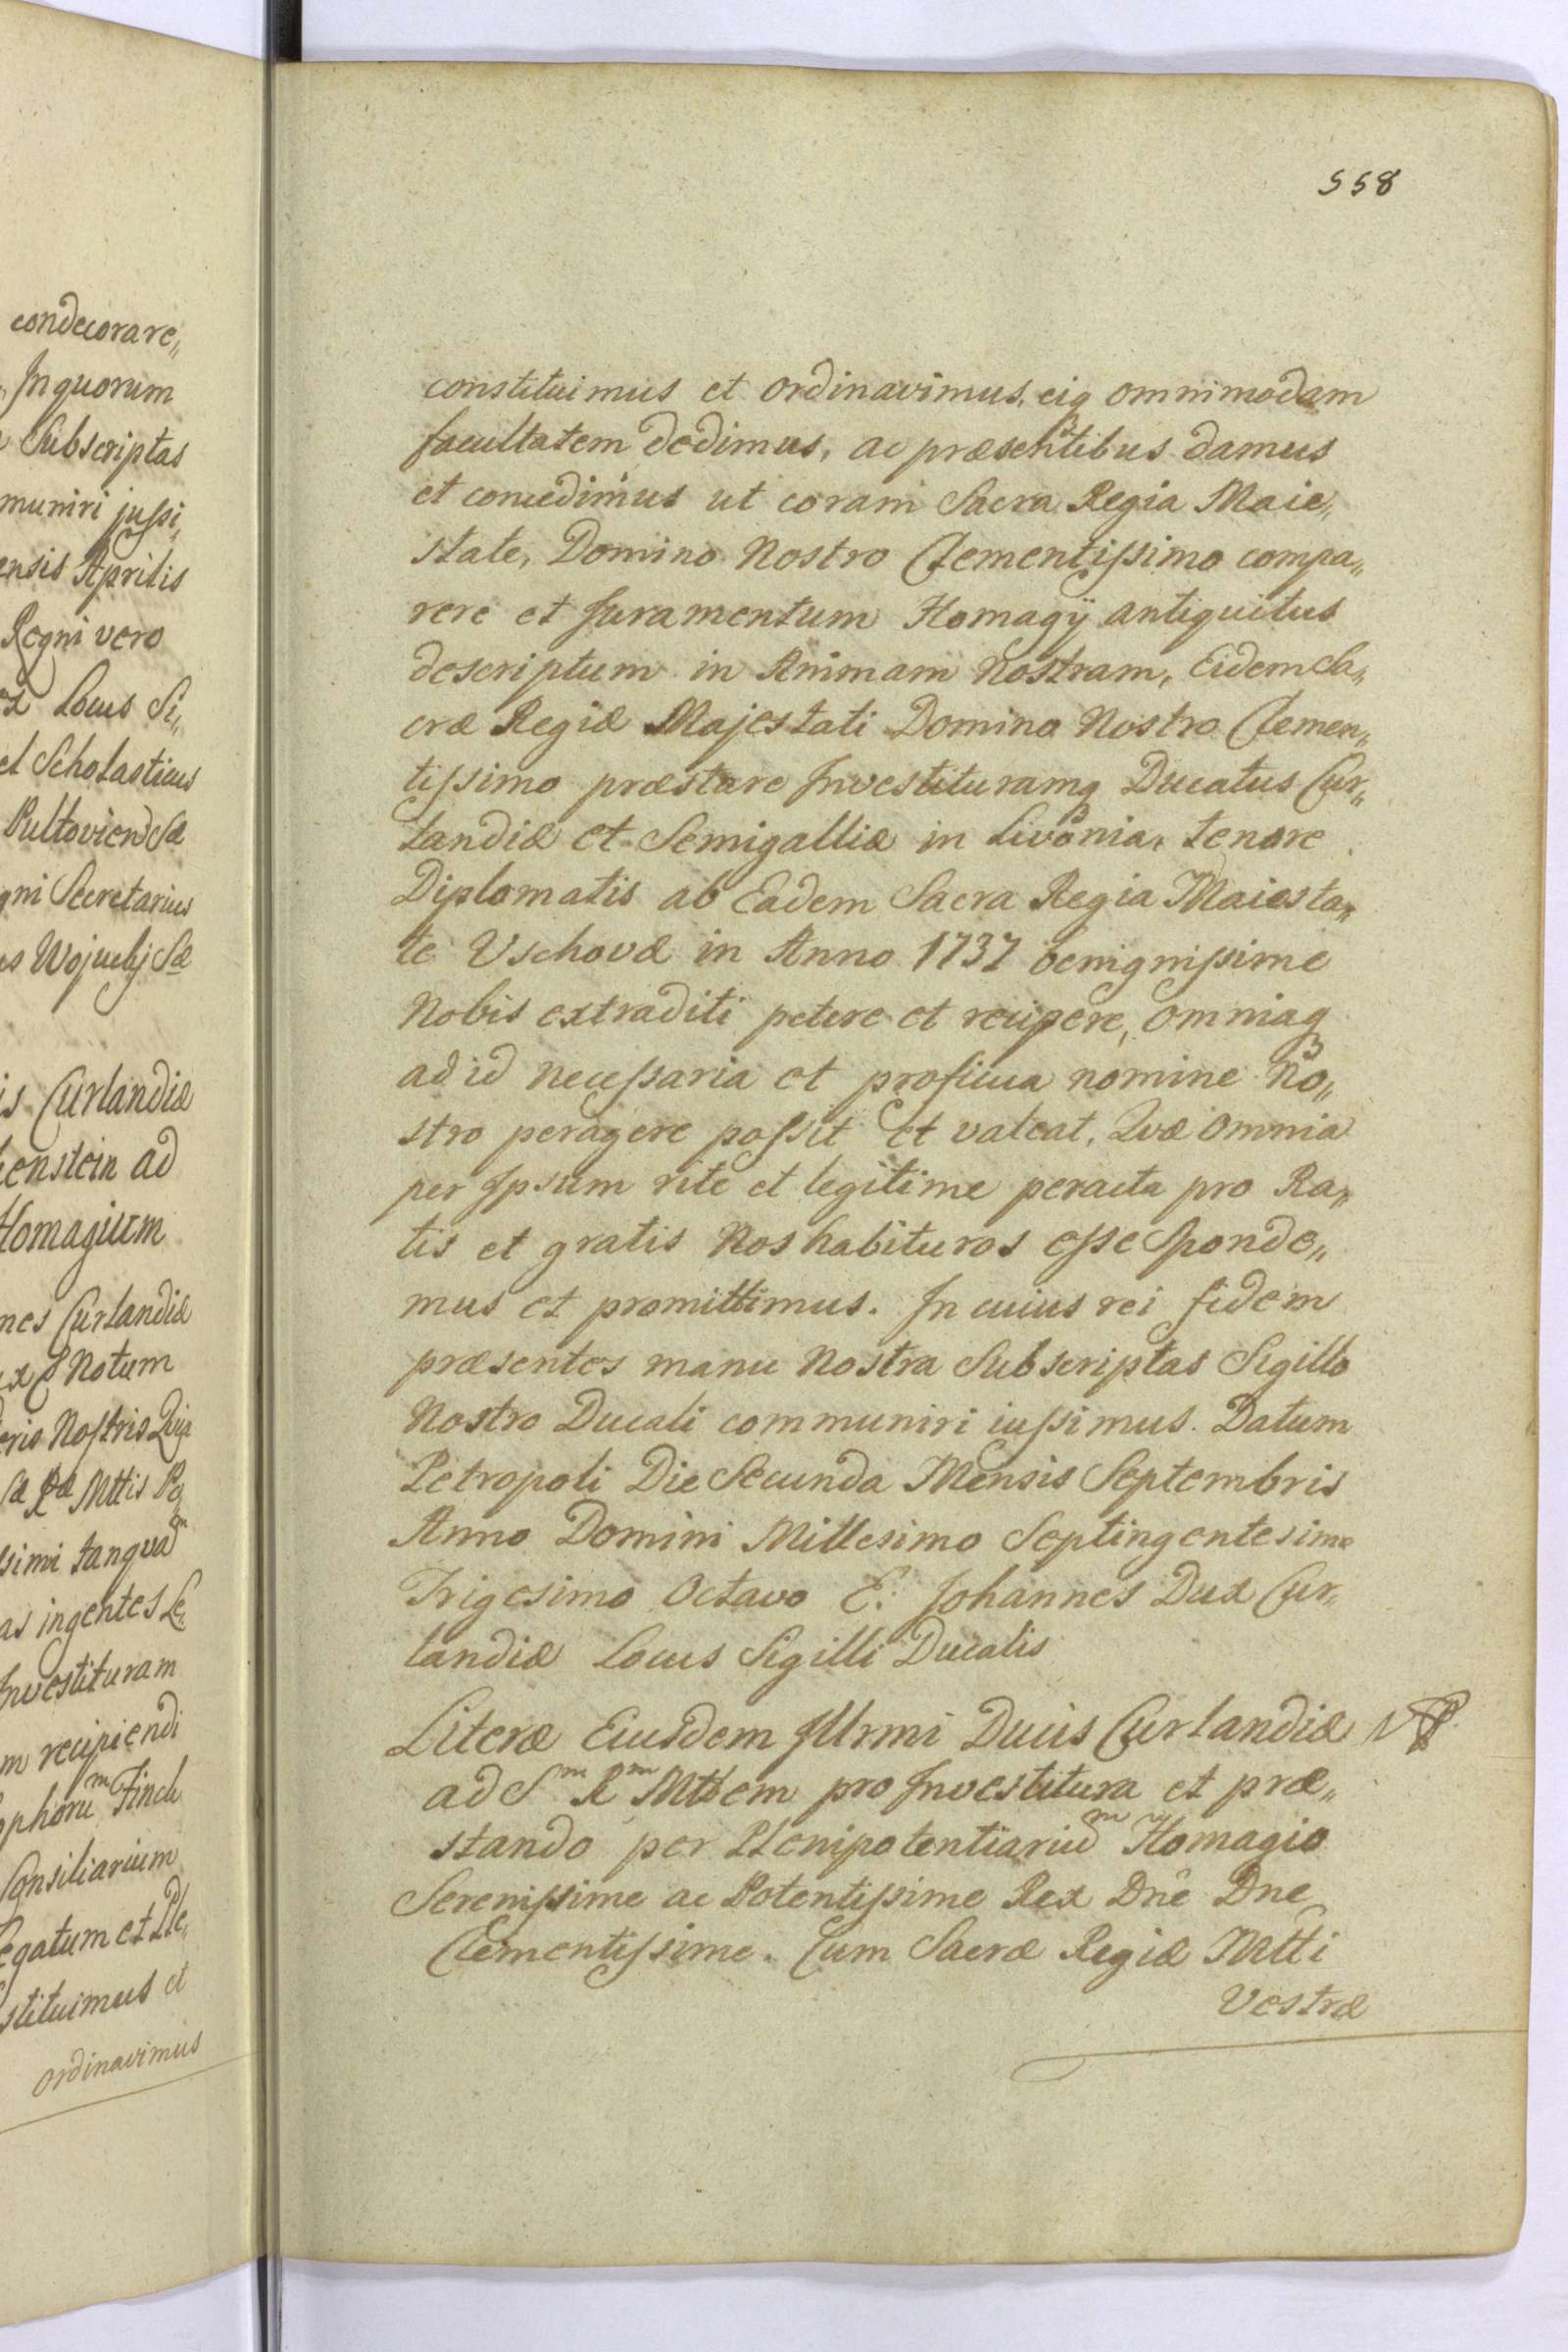 condecorare„
Inquorum
Subscriptas
muniri jussi„
ensis Aprilis
Regni vero
Locus Si„
et Scholasticus
gni Secretarius
is Curlandiæ
enstein ad
Homagium
nes Curlandiæ
Notum
eris Nostris
Mttis
simi tanqua͠m
as ingentes Le„
Investituram
m recipiendi
Finck
Consiliarium
egatum et Ple„
stituimus et
ordinavimus
558
constituimus et ordinavimus, eiq omnimodam
facultatem dedimus, ac præsentibus damus
et concedimus ut coram Sacra Regia Maie„
state, Domino Nostro Clementissimo compa„
rere et Juramentum Homagÿ antiquitus
descriptum in Animam Nostram, Eidem Sa„
cræ Regiæ Majestati Domino Nostro Clemen„
tissimo præstare Investituramq Ducatus Cur„
landiæ et Semigalliæ in Livonia, tenore
Diplomatis ab Eadem Sacra Regia Maiesta„
te Vschovæ in Anno 1737 benignissime
Nobis extraditi petere et recipere, omniaq
ad id necessaria et proficua nomine No„
stro peragere possit et valeat, Quæ omnia
per Ipsum rite et legitime peracta pro Ra„
tis et gratis Nos habituros esse Sponde„
mus et promittimus. In cuius rei fidem
præsentes manu Nostra Subscriptas Sigillo
Nostro Ducali communiri iussimus. Datum
Petropoli Die Secunda Mensis Septembris
Anno Domini Millesimo Septingentesimo
Trigesimo Octavo E: Johannes Dux Cur„
landiæ Locus Sigilli Ducalis
Literæ Eiusdem Illrmi Ducis Curlandiæ
ad Sm Rm Mttem pro Investitura et præ„
stando per Plenipotentiariūm Homagio
Serenissime ac Potentissime Rex Dne Dne
Clementissime. Cum Sacræ Regiæ Mtti
Vestræ